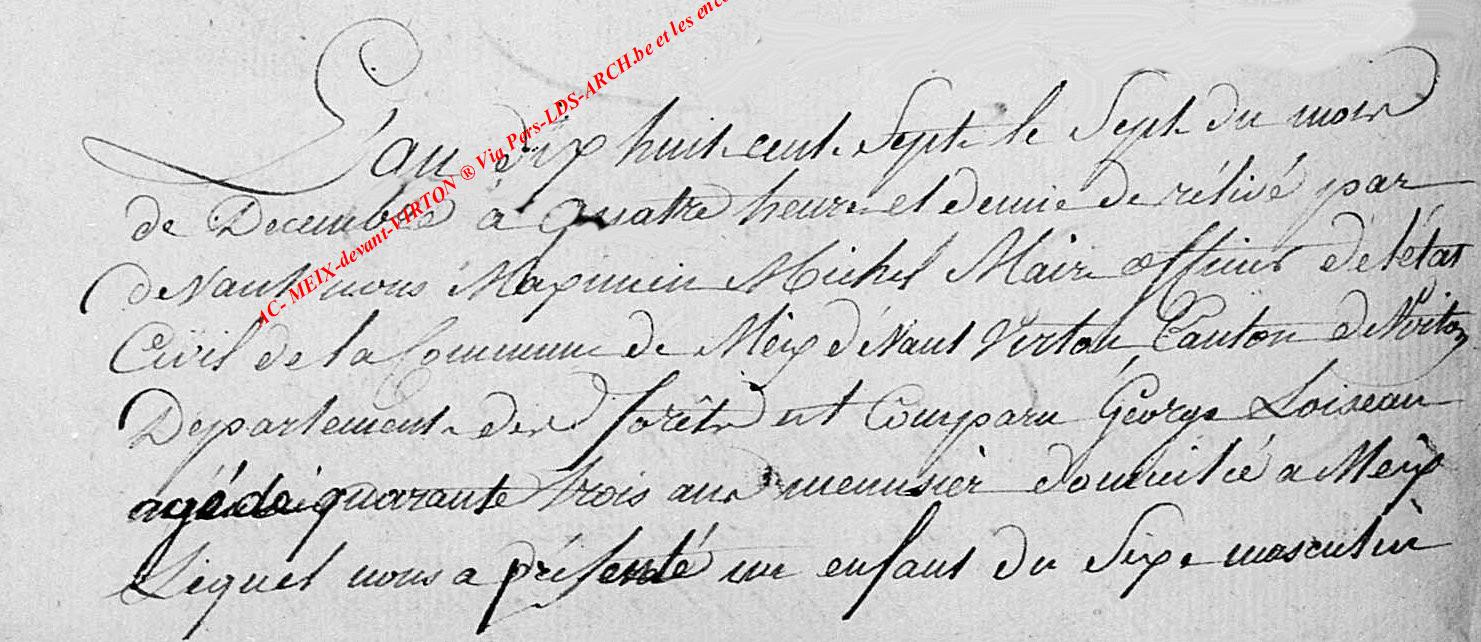 AC- MEIX-devant-VIRTON ® Via Pers-LDS-ARCH.be et les
L'an dix huit cent Sept le Sept du mois
de Decembre à quatre heure et demie de rélivé par
devant nous Maximin Michel Maire officier de l'état
Civil de la Commune de Méix dévant Virton Canton de Virton
Département des forêts est Comparu George Loiseau
agé de quarante trois ans menusier domicilié a Meix
Lequel nous a présenté un enfant du Sixe masculin